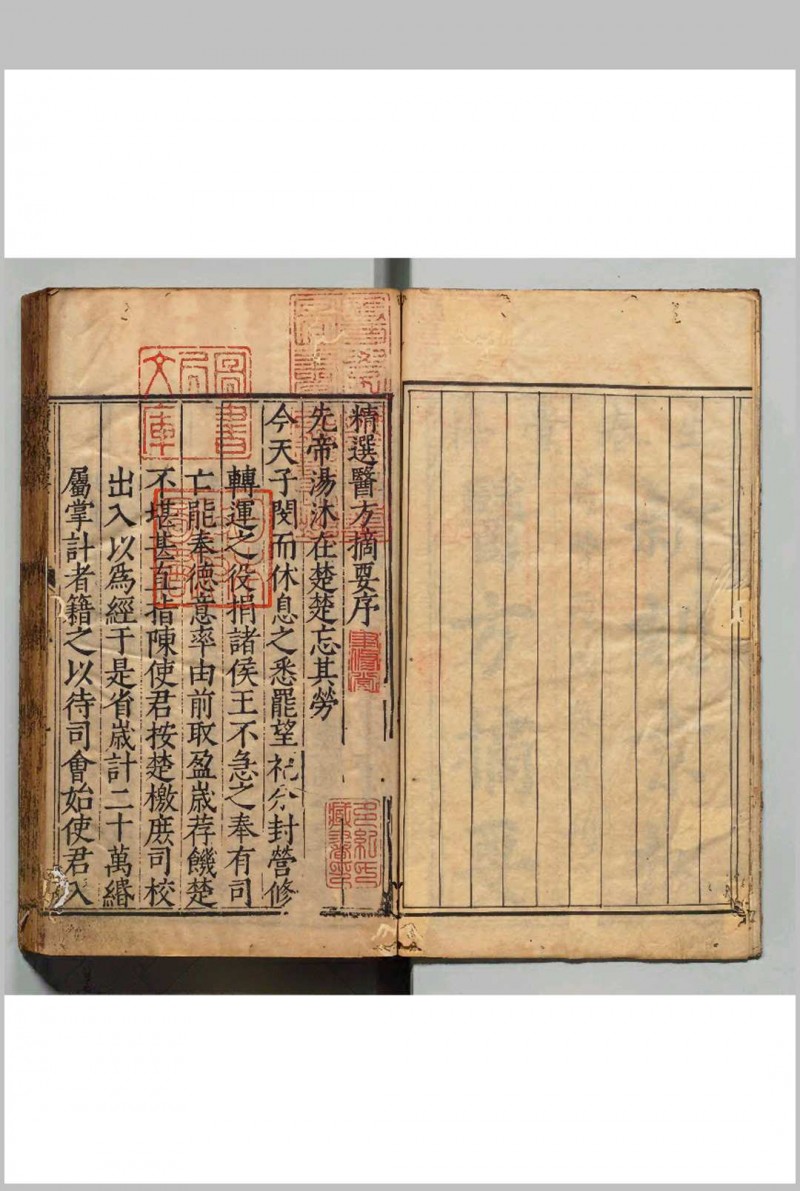 精選醫方摘要序
先帝湯沐在楚楚忘其勞
今天子閔而休息之悉罷望祀分封營修
轉運之役捐諸侯王不急之奉有司
亡能奉德意率由前取盈歲荐饑楚
不堪甚直指陳使君按楚檄庶司校
出入以爲經于是省歲計二十萬緡
屬掌計者籍之以待司會始使君入
圖書局文庫